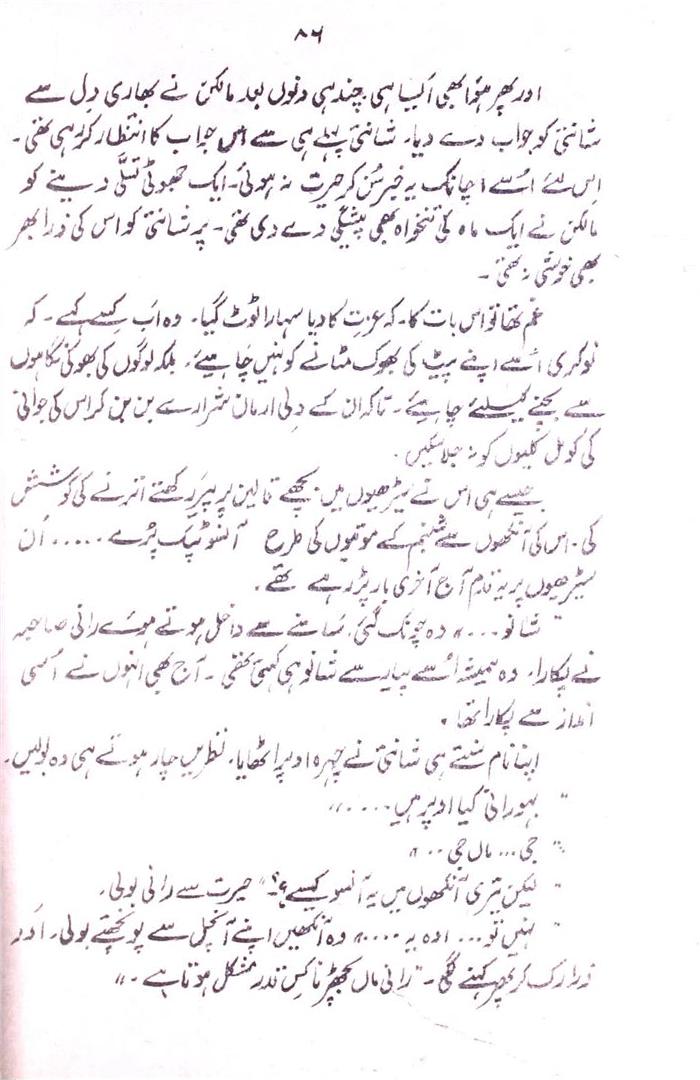 ۸۶
اور پھر ہوا بھی ایسا ہی۔ چند ہی دنوں بعد مالکن نے بھاری دل سے
شانتی کو جواب دے دیا۔ شانتی پہلے ہی سے اس جواب کا انتظار کر رہی تھی۔
اس لئے اُسے اچانک یہ خبر سُن کر حیرت نہ ہوئی۔ ایک جھوٹی تسلّی دینے کو
مالکن نے ایک ماہ کی تنخواہ بھی پیشگی دے دی تھی۔ پر شانتی کو اس کی ذرا بھر
بھی خوشی نہ تھی۔
غم تھا تو اس بات کا۔ کہ عزت کا دیا سہارا ٹوٹ گیا۔ وہ اب کسے کہے۔ کہ
نوکری اُسے اپنے پیٹ کی بھوک مٹانے کو نہیں چاہیئے۔ بلکہ لوگوں کی بھوکی نگاہوں
سے بچنے کیلئے چاہیئے۔ تاکہ ان کے دلی ارمان شرارے بن بن کر اس کی جوانی
کی کومل کلیوں کو نہ جلا سکیں۔
جیسے ہی اس نے سیڑھیوں میں بچھے قالین پر پیر رکھتے اُترنے کی کوشش
کی۔ اس کی آنکھوں سے شبنم کے موتیوں کی طرح آنسو ٹپک پڑے ..... اُن
سیڑھیوں پر یہ قدم آج آخری بار پڑ رہے تھے۔
"شانو...." وہ چونک گئی، سامنے سے داخل ہوتے ہوئے رانی صاحبہ
نے پکارا۔ وہ ہمیشہ اُسے پیار سے شانو ہی کہتی تھی۔ آج بھی انہوں نے اُسی
انداز سے پکارا تھا۔
اپنا نام سنتے ہی شانتی نے چہرہ اوپر اٹھایا۔ نظریں چار ہوتے ہی وہ بولیں۔
"بہورانی کیا اوپر ہیں....."
"جی... ماں جی..."
"لیکن تیری آنکھوں میں یہ آنسو کیسے؟" حیرت سے رانی بولی۔
"نہیں تو... اوہ یہ....." وہ آنکھیں اپنے آنچل سے پونچھتے بولی۔ اور
ذرا رک کر پھر کہنے لگی۔ "رانی ماں بچھڑنا کس قدر مشکل ہوتا ہے۔"